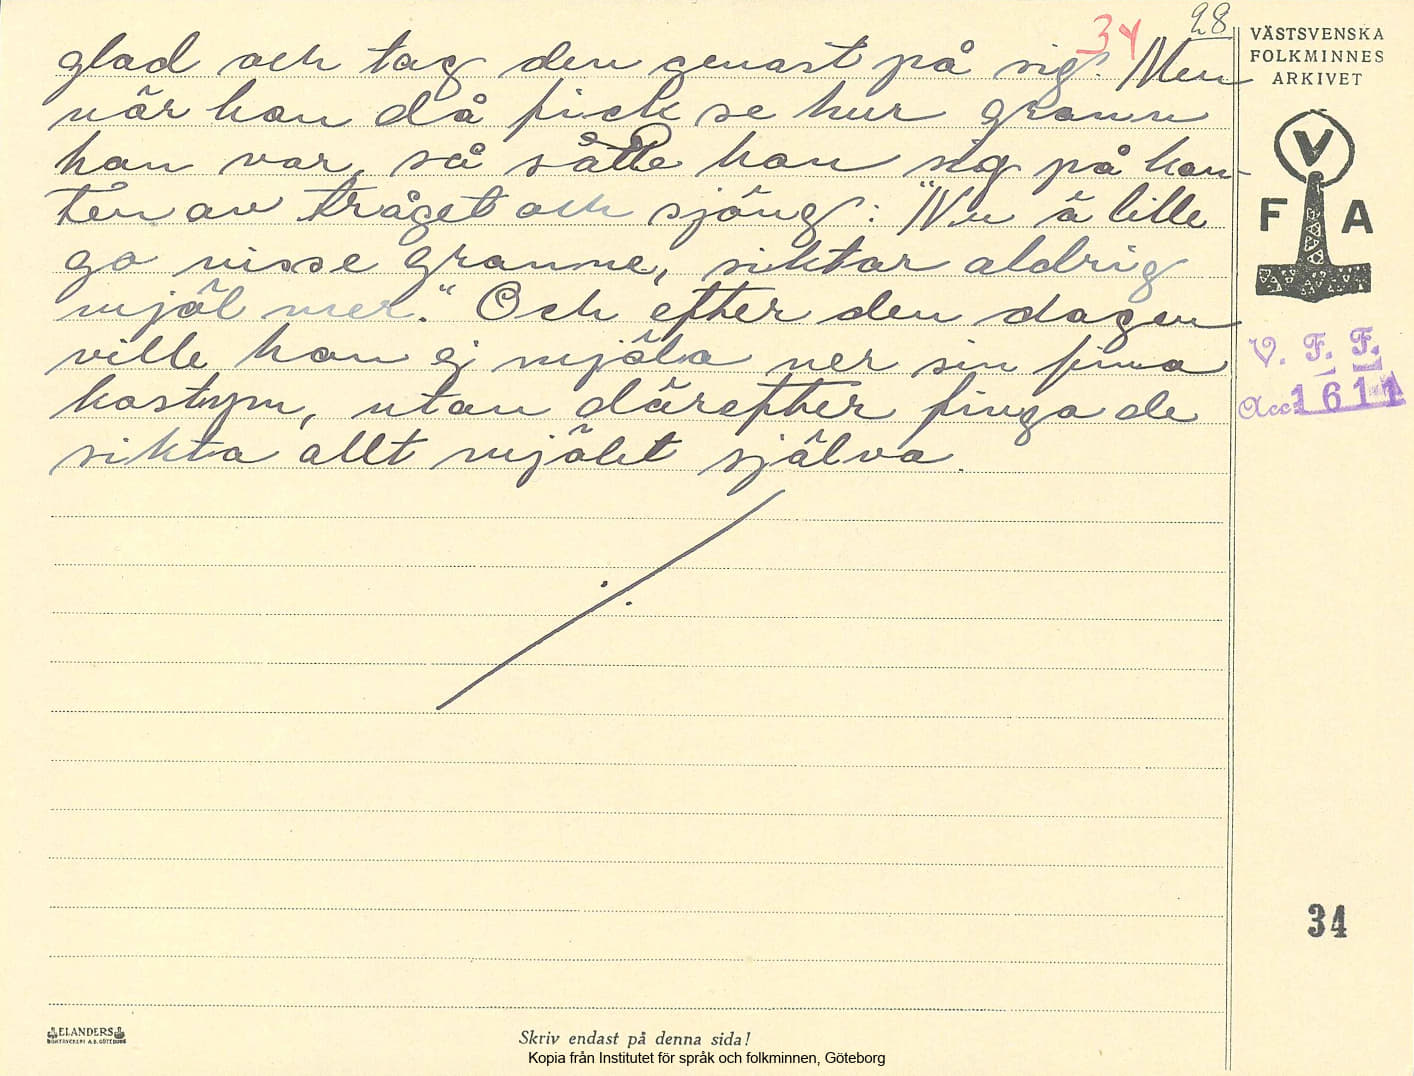 34
28
glad och tag den genast på sig. Men
när han då fick se hur grann
han var, så sätte han sig på kan-
ten av tråget och sjöng: "Nu ä lille
go nisse granne, siktar aldrig
mjöl mer." Och efter den dagen
ville han ej mjöla ner sin fina
kostym, utan därefter finga de
sikta allt mjölet själva.
VÄSTSVENSKA
FOLKMINNES
ARKIVET
V
F A
V. F. F.
Acc. 1611
34
ELANDERS
BOKTRYCKERI A.B. GÖTEBORG
Skriv endast på denna sida!
Kopia från Institutet för språk och folkminnen, Göteborg